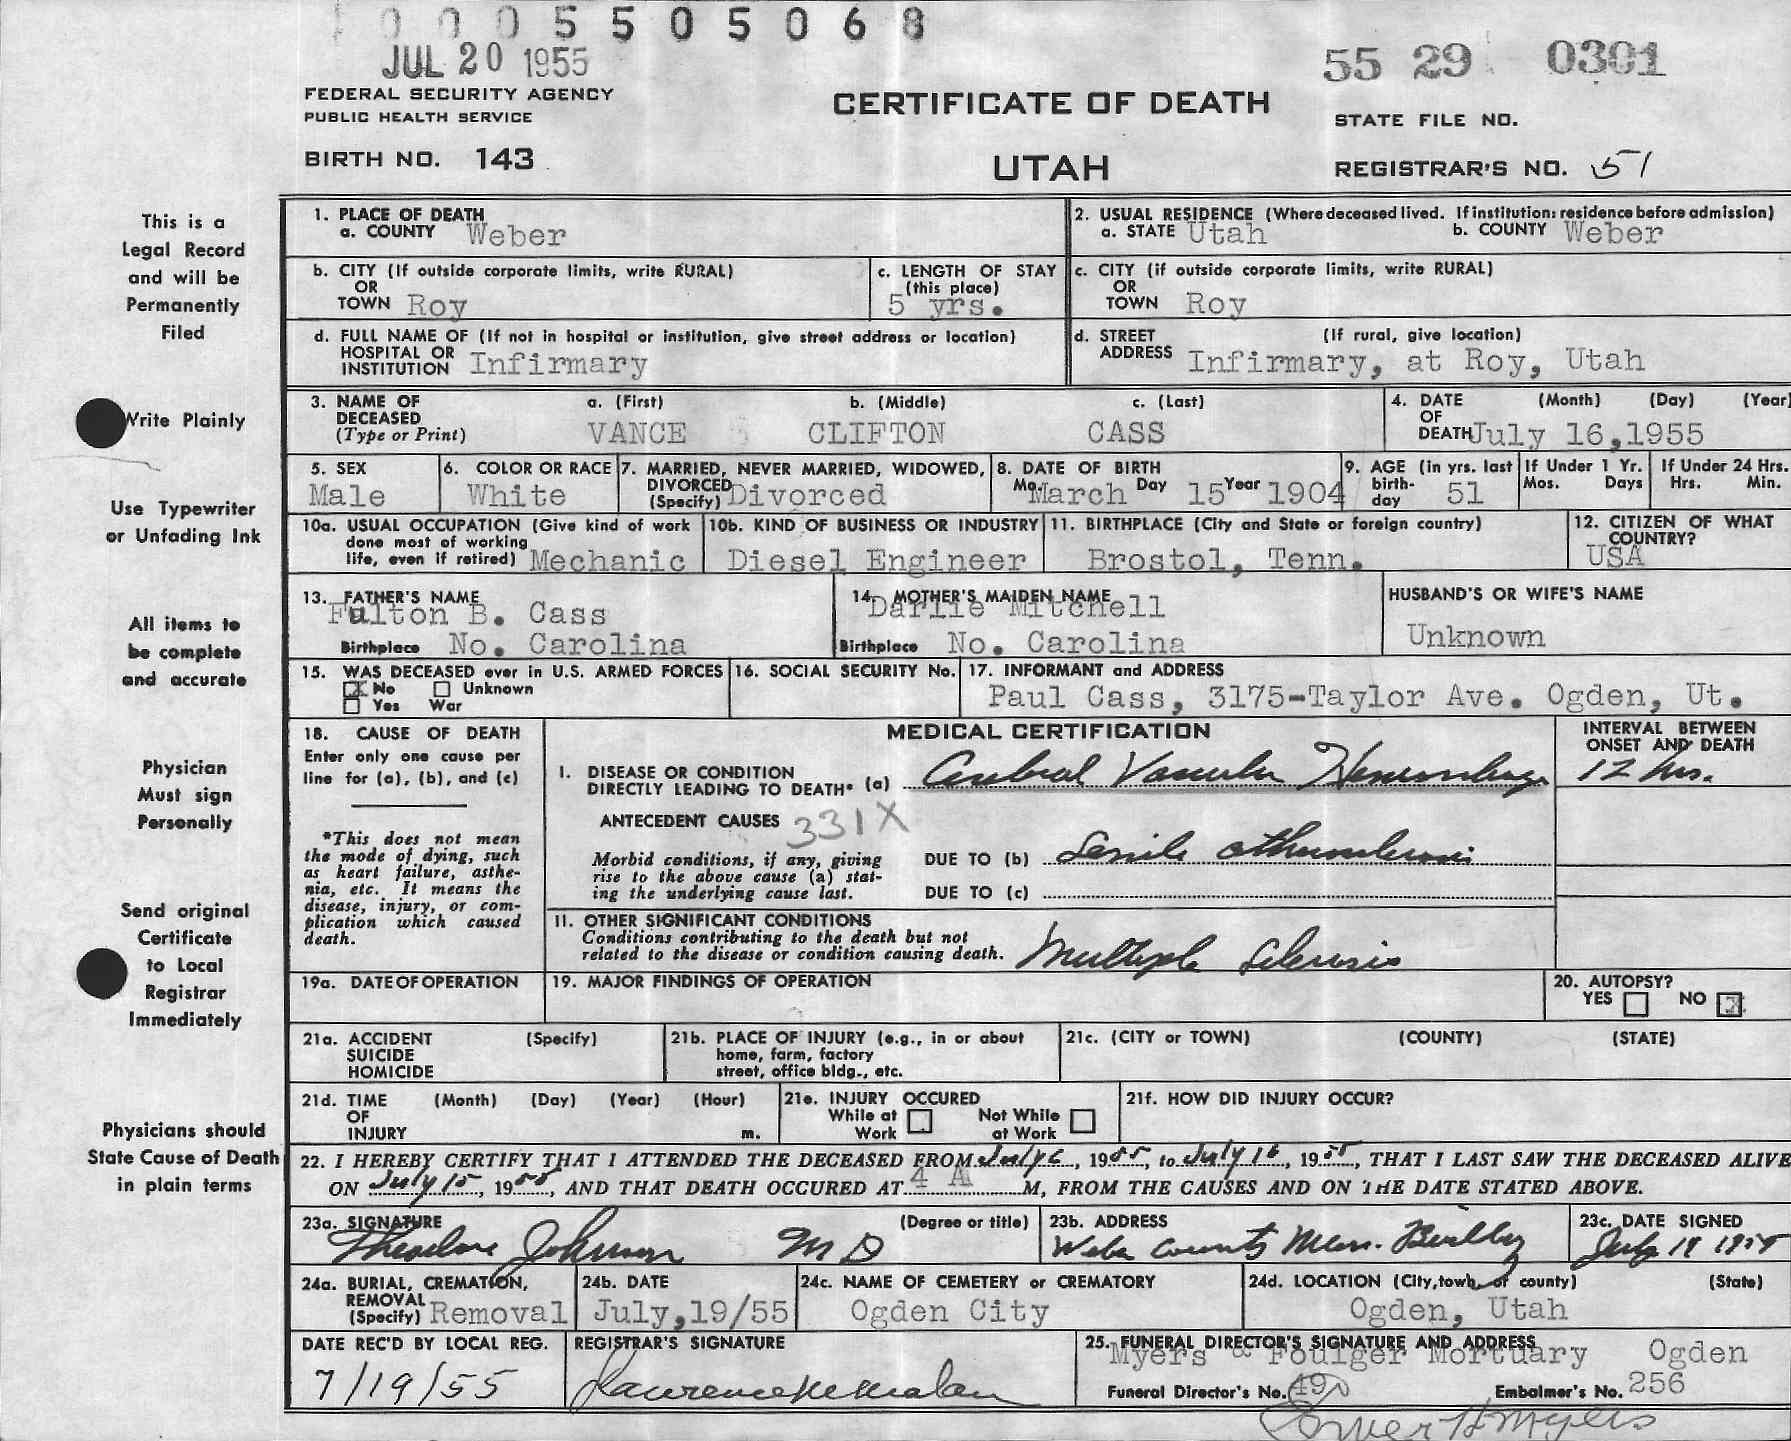 0 0 0 5 5 0 5 0 6 8
JUL 20 1955
55 29 0301
FEDERAL SECURITY AGENCY
PUBLIC HEALTH SERVICE
CERTIFICATE OF DEATH
STATE FILE NO.
BIRTH NO. 143
UTAH
REGISTRAR'S NO. 51
This is a
Legal Record
and will be
Permanently
Filed
Write Plainly
Use Typewriter
or Unfading Ink
All items to
be complete
and accurate
Physician
Must sign
Personally
Send original
Certificate
to Local
Registrar
Immediately
Physicians should
State Cause of Death
in plain terms
1. PLACE OF DEATH
a. COUNTY Weber
2. USUAL RESIDENCE (Where deceased lived. If institution: residence before admission)
a. STATE Utah b. COUNTY Weber
b. CITY (If outside corporate limits, write RURAL)
OR
TOWN Roy
c. LENGTH OF STAY
(this place)
5 yrs.
c. CITY (if outside corporate limits, write RURAL)
OR
TOWN Roy
d. FULL NAME OF (If not in hospital or institution, give street address or location)
HOSPITAL OR
INSTITUTION Infirmary
d. STREET (If rural, give location)
ADDRESS Infirmary, at Roy, Utah
3. NAME OF a. (First) b. (Middle) c. (Last)
DECEASED
(Type or Print) VANCE CLIFTON CASS
4. DATE (Month) (Day) (Year)
OF
DEATH July 16,1955
5. SEX
Male
6. COLOR OR RACE
White
7. MARRIED, NEVER MARRIED, WIDOWED,
DIVORCED
(Specify) Divorced
8. DATE OF BIRTH
Mo. March Day 15 Year 1904
9. AGE (in yrs. last
birth-
day 51
If Under 1 Yr.
Mos. Days
If Under 24 Hrs.
Hrs. Min.
10a. USUAL OCCUPATION (Give kind of work
done most of working
life, even if retired) Mechanic
10b. KIND OF BUSINESS OR INDUSTRY
Diesel Engineer
11. BIRTHPLACE (City and State or foreign country)
Brostol, Tenn.
12. CITIZEN OF WHAT
COUNTRY?
USA
13. FATHER'S NAME
Fulton B. Cass
Birthplace No. Carolina
14. MOTHER'S MAIDEN NAME
Darlie Mitchell
Birthplace No. Carolina
HUSBAND'S OR WIFE'S NAME
Unknown
15. WAS DECEASED ever in U.S. ARMED FORCES
X No Unknown
Yes War
16. SOCIAL SECURITY No.
17. INFORMANT and ADDRESS
Paul Cass, 3175-Taylor Ave. Ogden, Ut.
18. CAUSE OF DEATH
Enter only one cause per
line for (a), (b), and (c)
*This does not mean
the mode of dying, such
as heart failure, asthe-
nia, etc. It means the
disease, injury, or com-
plication which caused
death.
MEDICAL CERTIFICATION
INTERVAL BETWEEN
ONSET AND DEATH
I. DISEASE OR CONDITION
DIRECTLY LEADING TO DEATH* (a) Cerebral Vascular Hemorrhage 12 hrs.
ANTECEDENT CAUSES 331X
Morbid conditions, if any, giving
rise to the above cause (a) stat-
ing the underlying cause last.
DUE TO (b) Senile
DUE TO (c)
II. OTHER SIGNIFICANT CONDITIONS
Conditions contributing to the death but not
related to the disease or condition causing death. Multiple Sclerosis
19a. DATE OF OPERATION
19. MAJOR FINDINGS OF OPERATION
20. AUTOPSY?
YES NO X
21a. ACCIDENT (Specify)
SUICIDE
HOMICIDE
21b. PLACE OF INJURY (e.g., in or about
home, farm, factory
street, office bldg., etc.
21c. (CITY or TOWN) (COUNTY) (STATE)
21d. TIME (Month) (Day) (Year) (Hour)
OF
INJURY m.
21e. INJURY OCCURED
While at Not While
Work at Work
21f. HOW DID INJURY OCCUR?
22. I HEREBY CERTIFY THAT I ATTENDED THE DECEASED FROM July 6, 1955, to July 16, 1955, THAT I LAST SAW THE DECEASED ALIVE
ON July 15, 1955, AND THAT DEATH OCCURED AT 4 A M, FROM THE CAUSES AND ON THE DATE STATED ABOVE.
23a. SIGNATURE (Degree or title)
Theodore Johnson M D
23b. ADDRESS
Weber County Mem. Building
23c. DATE SIGNED
July 19 1955
24a. BURIAL, CREMATION,
REMOVAL
(Specify) Removal
24b. DATE
July,19/55
24c. NAME OF CEMETERY or CREMATORY
Ogden City
24d. LOCATION (City, town, or county) (State)
Ogden, Utah
DATE REC'D BY LOCAL REG.
7/19/55
REGISTRAR'S SIGNATURE
Lawrence Malan
25. FUNERAL DIRECTOR'S SIGNATURE AND ADDRESS
Myers & Foulger Mortuary Ogden
Funeral Director's No. 49 Embalmer's No. 256
Myers